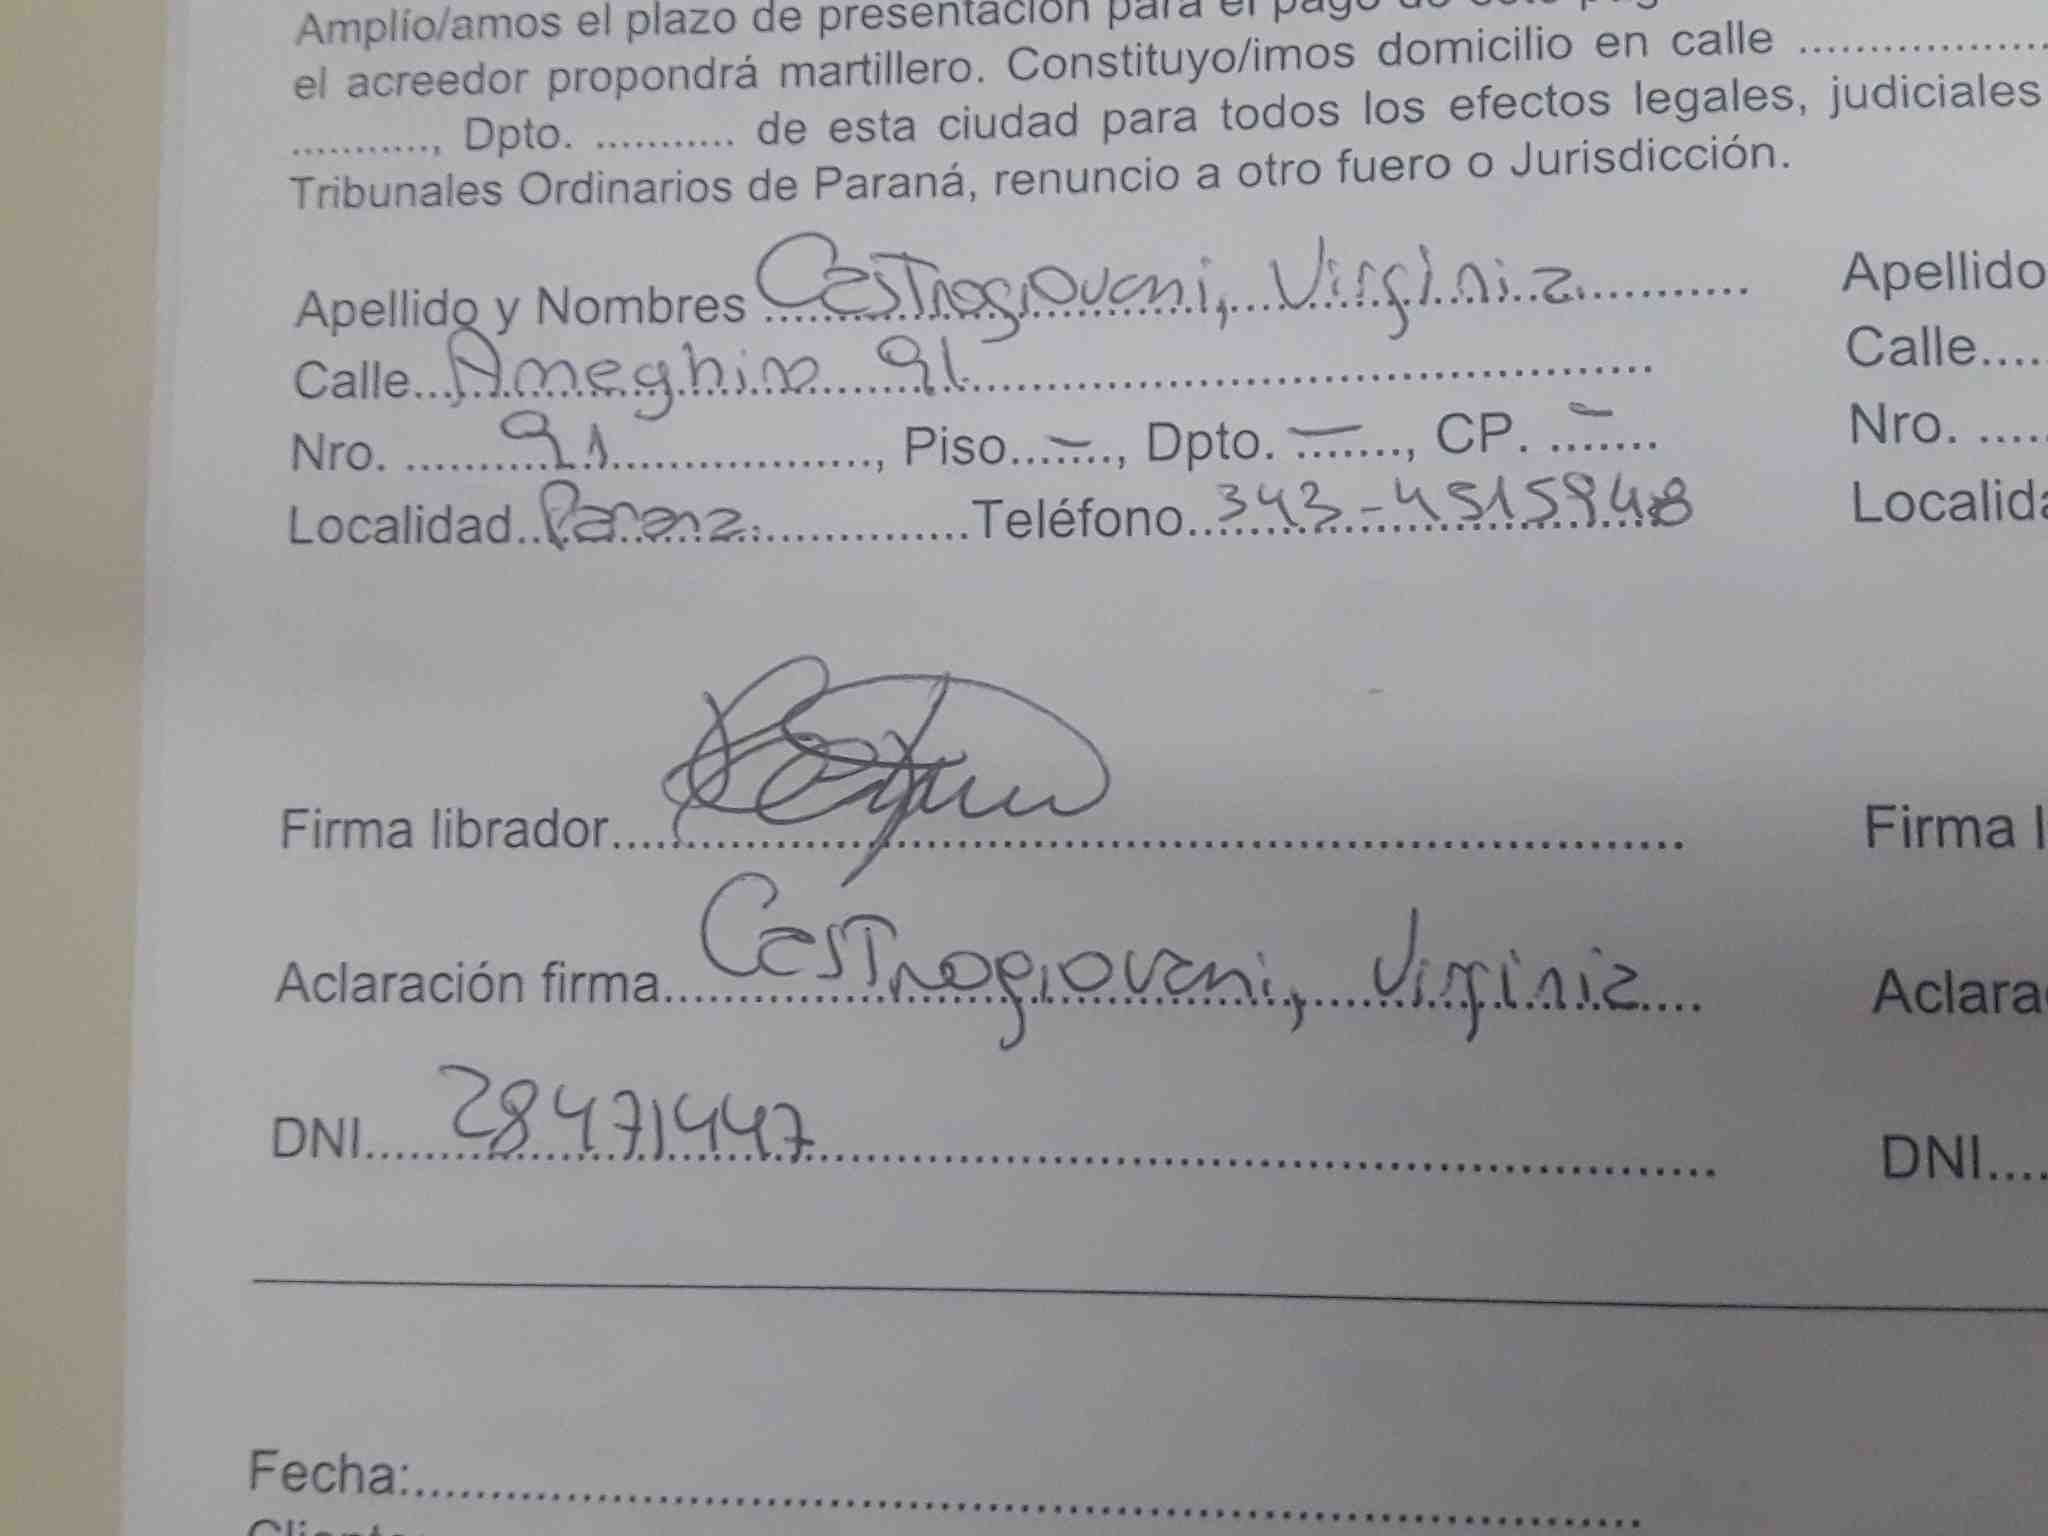 Amplío/amos el plazo de presentación para el pago de este pag
el acreedor propondrá martillero. Constituyo/imos domicilio en calle ....................
............, Dpto. ............ de esta ciudad para todos los efectos legales, judiciales
Tribunales Ordinarios de Paraná, renuncio a otro fuero o Jurisdicción.
Apellido y Nombres Castrogiovani, Virginia Apellido
Calle Ameghino 91 Calle.....
Nro. 91, Piso -, Dpto. -, CP. - Nro. .....
Localidad Parana Teléfono 343-4515948 Localida
Firma librador Firma l
Aclaración firma Castrogiovani, Virginia Aclara
DNI 28471447 DNI....
Fecha: